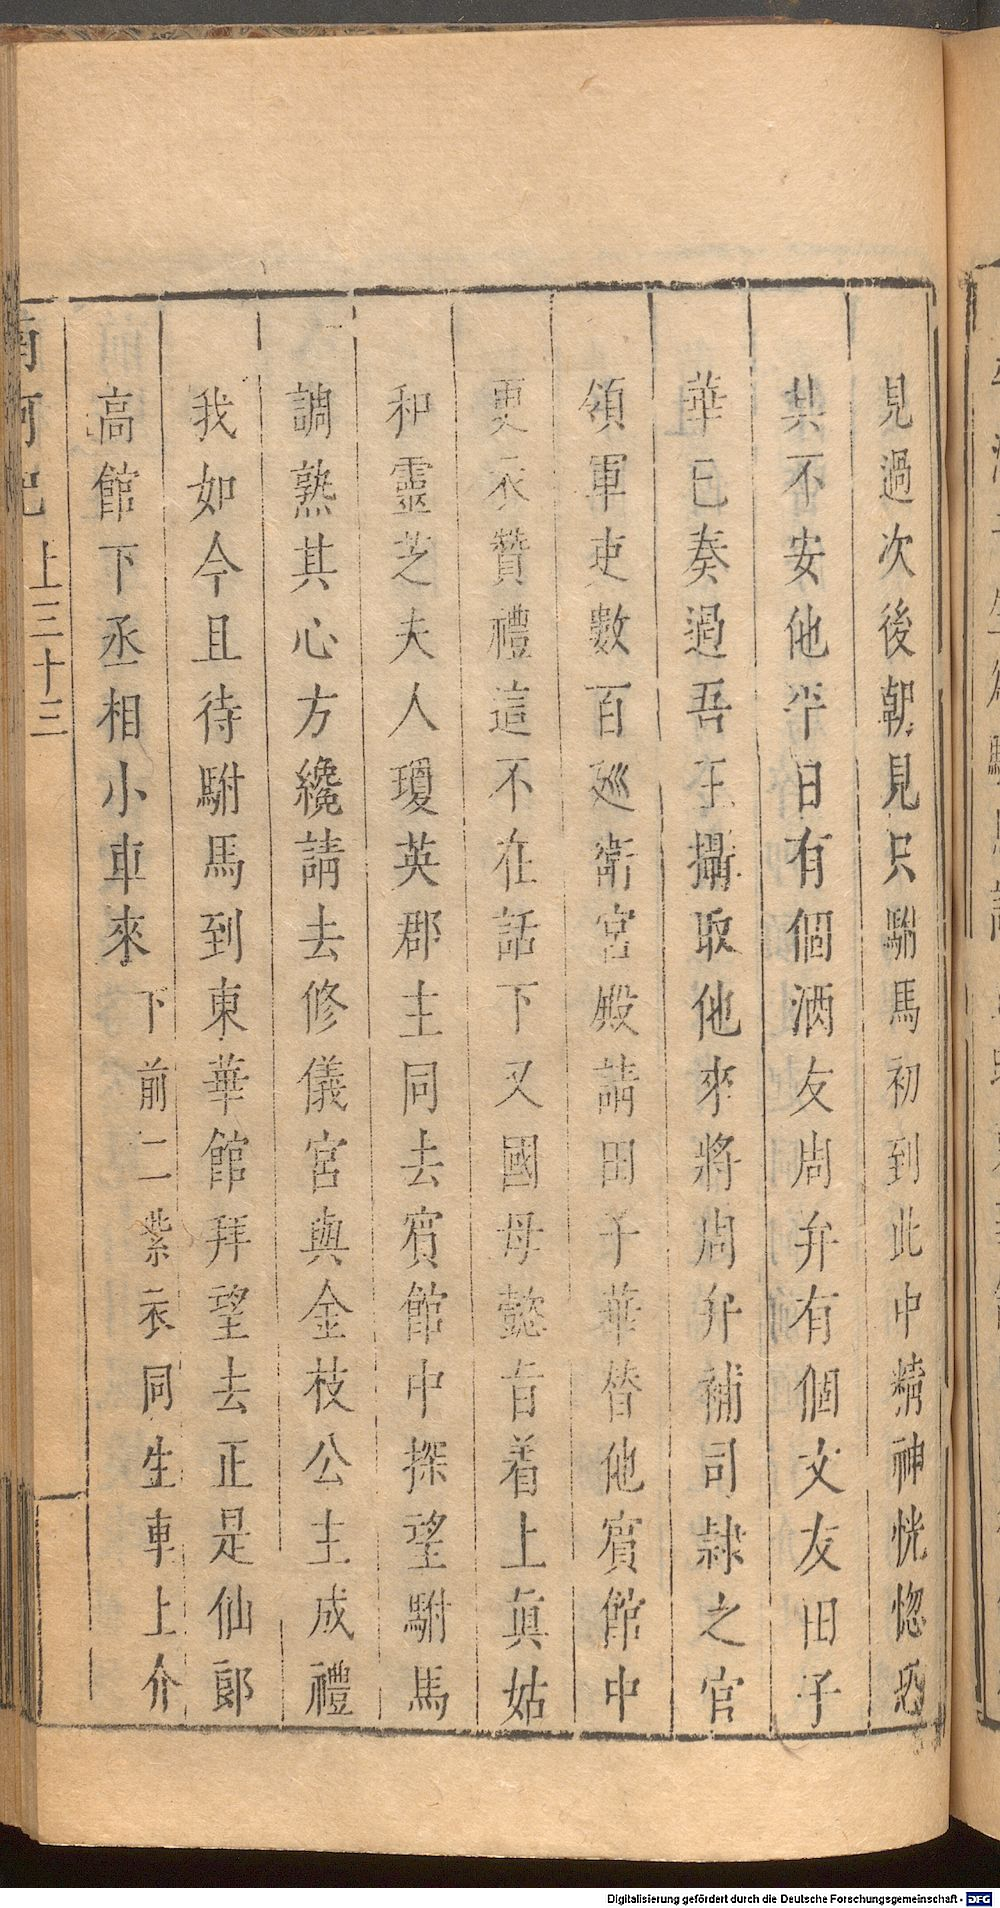 見過次後朝見只駙馬初到此中精神恍惚恐
其不安他平日有個酒友周弁有個文友田子
華已奏過吾王攝取他來將周弁補司隸之官
領軍吏數百廵衛宮殿請田子華替他賓館中
更衣贊禮這不在話下又國母懿旨着上真姑
和靈芝夫人瓊英郡主同去賓館中探望駙馬
調熟其心方纔請去修儀宮與金枝公主成禮
我如今且待駙馬到東華館拜望去正是仙郎
高館下丞相小車來 下 前二紫衣同生車上介
南柯記 上三十三
Digitalisierung gefördert durch die Deutsche Forschungsgemeinschaft - DFG